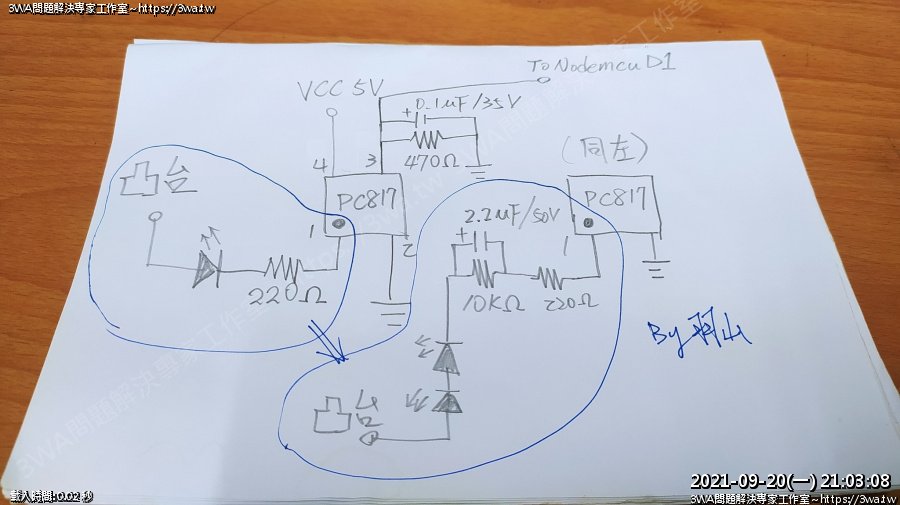 3WA問題解決專家工作室~https://3wa.tw
To Nodemcu D1
VCC 5V
+ 0.1uF/35V
470Ω
4
3
(同左)
凸台
PC817
1
2
220Ω
PC817
1
2.2uF/50V
+
10KΩ
220Ω
凸台
By 羽山
3WA問題解決專家工作室~https://3wa.tw
載入時間:0.02 秒
2021-09-20(一) 21:03:08
3WA問題解決專家工作室~https://3wa.tw